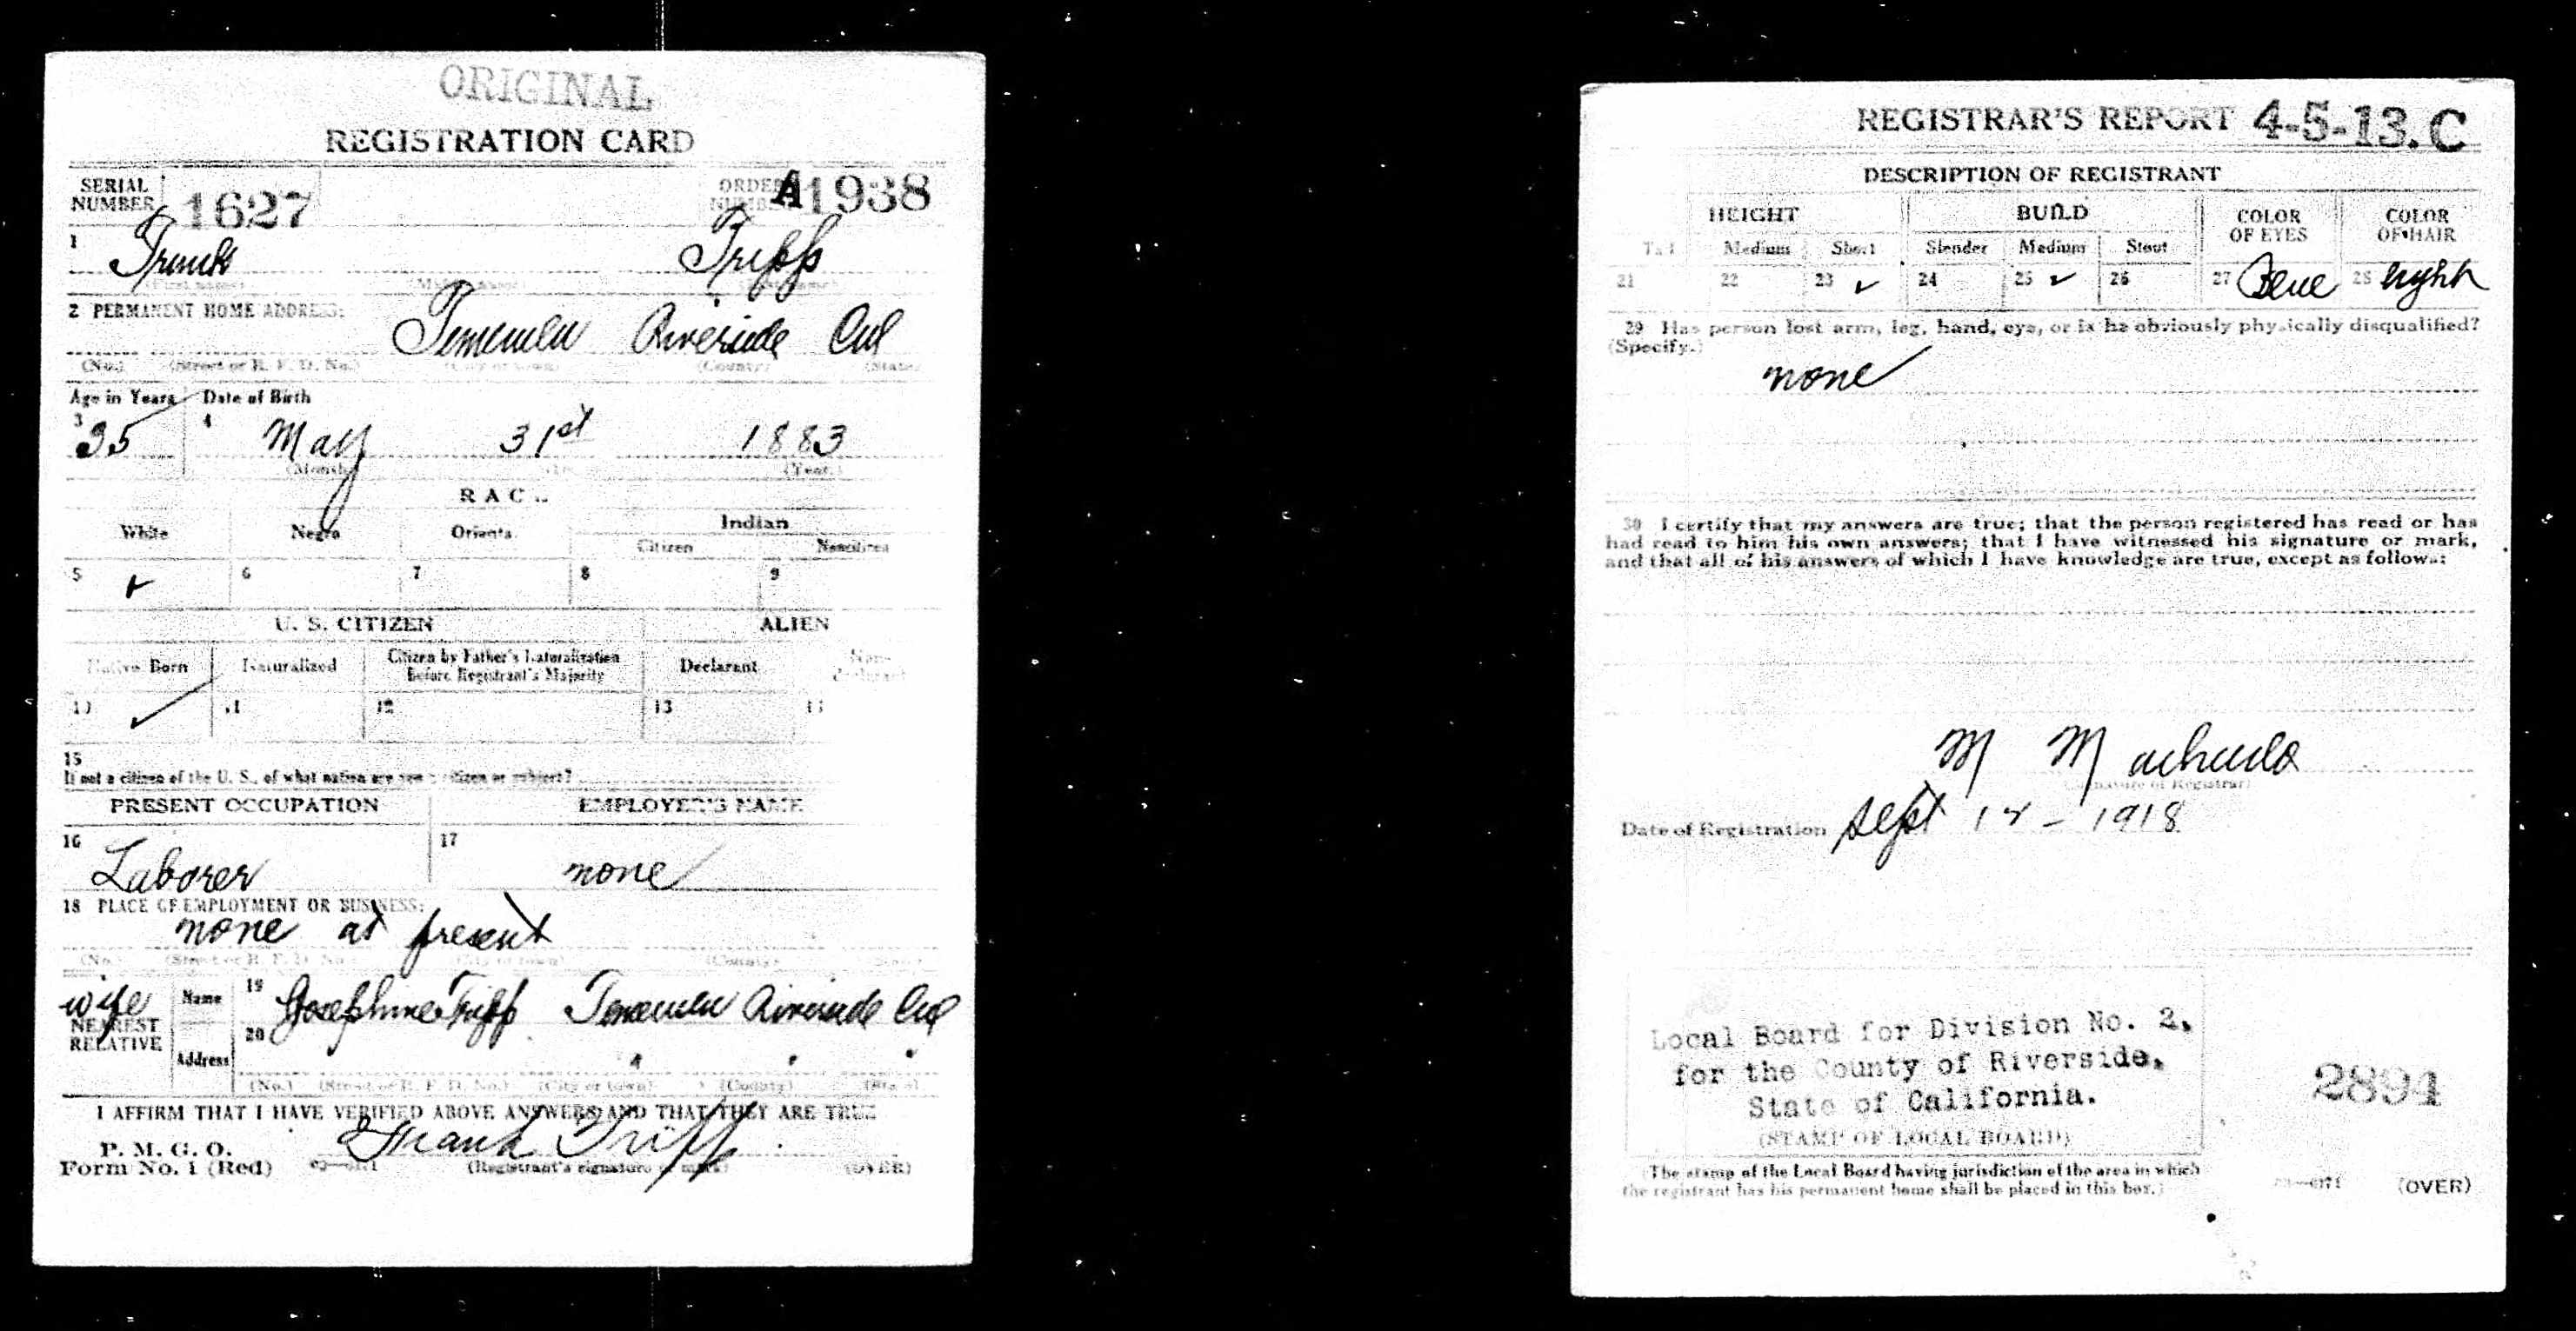 ORIGINAL
REGISTRATION CARD
SERIAL NUMBER 1627 ORDER NUMBER A1938
1 Frank Tripp
(First name) (Middle name) (Last name)
2 PERMANENT HOME ADDRESS:
Temecula Riverside Cal
(No.) (Street or R. F. D. No.) (City or town) (County) (State)
Age in Years Date of Birth
3 35 4 May 31st 1883
(Month) (Year.)
RACE
White Negro Oriental Indian
Citizen Noncitizen
5 ✓ 6 7 8 9
U. S. CITIZEN ALIEN
Native Born Naturalized Citizen by Father's Naturalization Before Registrant's Majority Declarant Non-Declarant
10 ✓ 11 12 13 14
15
If not a citizen of the U. S., of what nation are you a citizen or subject?
PRESENT OCCUPATION EMPLOYER'S NAME
16 Laborer 17 none
18 PLACE OF EMPLOYMENT OR BUSINESS:
none at present
(No.) (Street or R. F. D. No.) (City or town) (County) (State)
wife NEAREST RELATIVE Name 19 Josephine Tripp Temecula Riverside Cal
Address 20 " " "
(No.) (Street or R. F. D. No.) (City or town) (County) (State)
I AFFIRM THAT I HAVE VERIFIED ABOVE ANSWERS AND THAT THEY ARE TRUE
P. M. G. O.
Form No. 1 (Red) Frank Tripp
(Registrant's signature or mark) (OVER)
REGISTRAR'S REPORT 4-5-13. C
DESCRIPTION OF REGISTRANT
HEIGHT BUILD COLOR OF EYES COLOR OF HAIR
Tall Medium Short Slender Medium Stout
21 22 23 ✓ 24 25 ✓ 26 27 Blue 28 light
29 Has person lost arm, leg, hand, eye, or is he obviously physically disqualified?
(Specify.)
none
30 I certify that my answers are true; that the person registered has read or has
had read to him his own answers; that I have witnessed his signature or mark,
and that all of his answers of which I have knowledge are true, except as follows:
M Machado
(Signature of Registrar)
Date of Registration Sept 12 - 1918
Local Board for Division No. 2,
for the County of Riverside,
State of California.
(STAMP OF LOCAL BOARD)
2894
(The stamp of the Local Board having jurisdiction of the area in which
the registrant has his permanent home shall be placed in this box.)
(OVER)